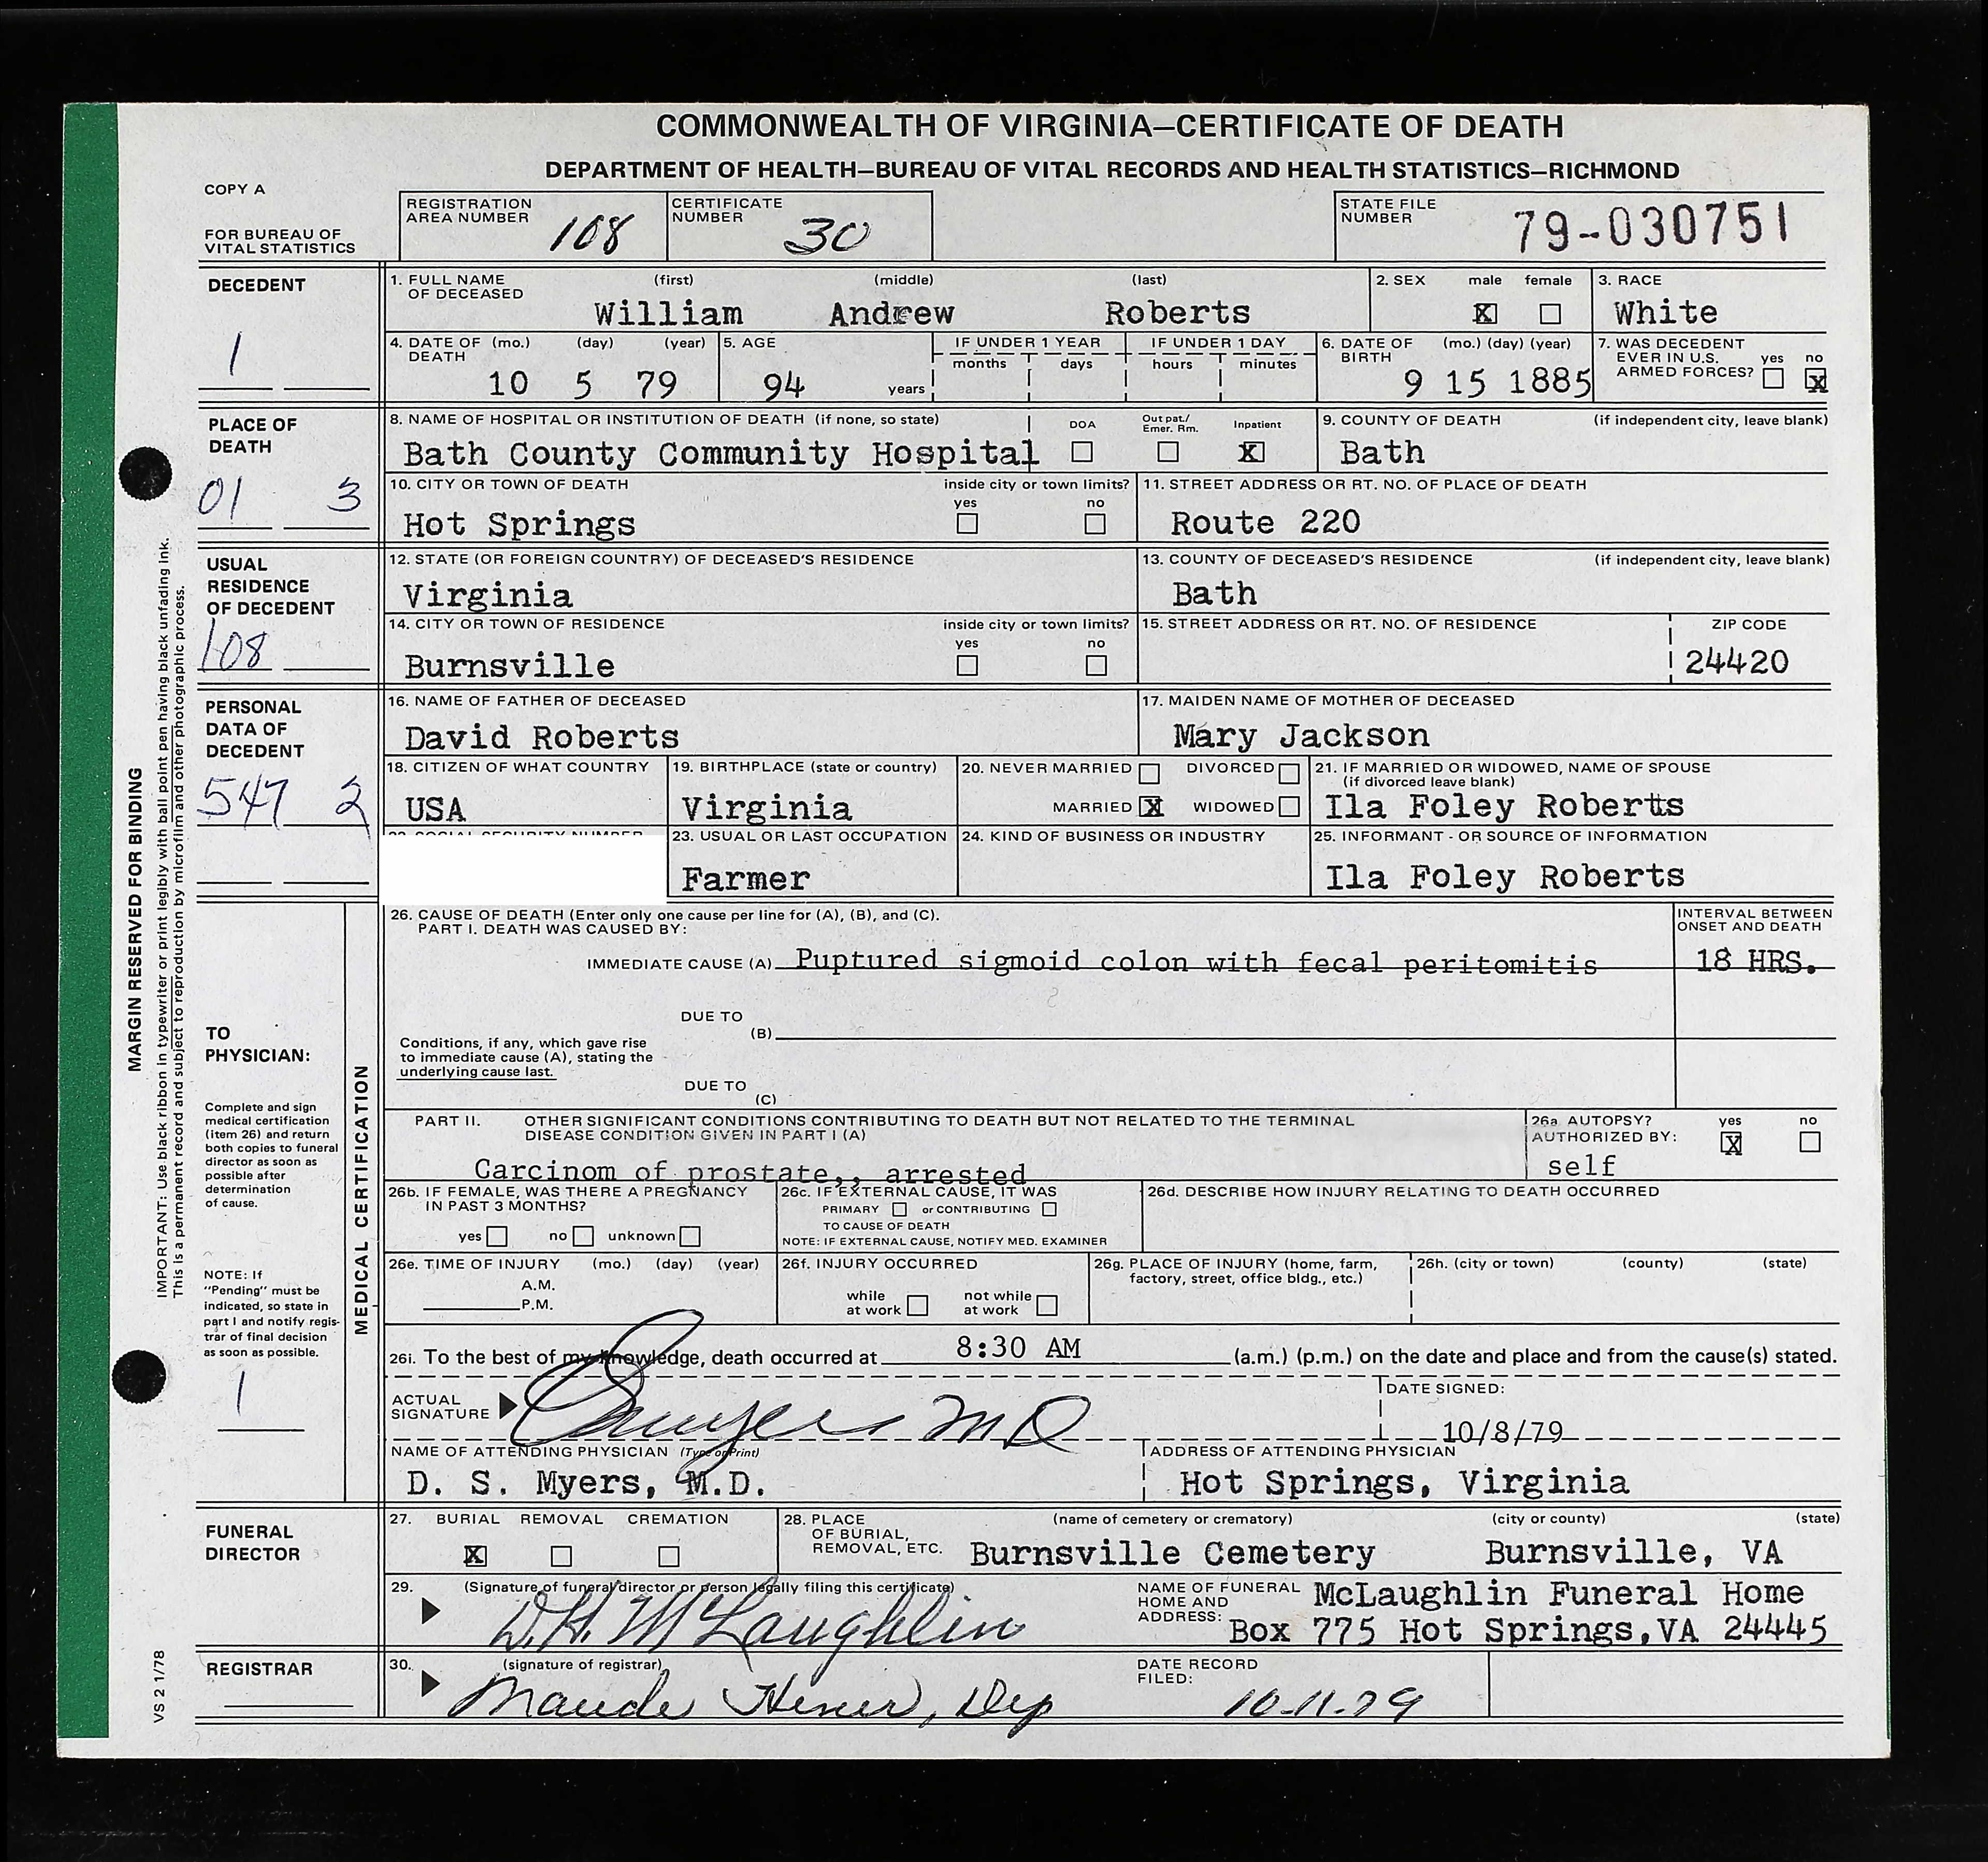 COMMONWEALTH OF VIRGINIA—CERTIFICATE OF DEATH
DEPARTMENT OF HEALTH—BUREAU OF VITAL RECORDS AND HEALTH STATISTICS—RICHMOND
COPY A
FOR BUREAU OF
VITAL STATISTICS
REGISTRATION
AREA NUMBER 108
CERTIFICATE
NUMBER 30
STATE FILE
NUMBER 79-030751
DECEDENT
1
1. FULL NAME (first) (middle) (last)
OF DECEASED
William Andrew Roberts
2. SEX male female
X
3. RACE
White
4. DATE OF (mo.) (day) (year)
DEATH
10 5 79
5. AGE
94 years
IF UNDER 1 YEAR
months days
IF UNDER 1 DAY
hours minutes
6. DATE OF (mo.) (day) (year)
BIRTH
9 15 1885
7. WAS DECEDENT
EVER IN U.S. yes no
ARMED FORCES? X
PLACE OF
DEATH
01 3
8. NAME OF HOSPITAL OR INSTITUTION OF DEATH (if none, so state)
Bath County Community Hospital
DOA Out pat./ Inpatient
Emer. Rm.
X
9. COUNTY OF DEATH (if independent city, leave blank)
Bath
10. CITY OR TOWN OF DEATH inside city or town limits?
yes no
Hot Springs
11. STREET ADDRESS OR RT. NO. OF PLACE OF DEATH
Route 220
USUAL
RESIDENCE
OF DECEDENT
108
12. STATE (OR FOREIGN COUNTRY) OF DECEASED'S RESIDENCE
Virginia
13. COUNTY OF DECEASED'S RESIDENCE (if independent city, leave blank)
Bath
14. CITY OR TOWN OF RESIDENCE inside city or town limits?
yes no
Burnsville
15. STREET ADDRESS OR RT. NO. OF RESIDENCE ZIP CODE
24420
PERSONAL
DATA OF
DECEDENT
547 2
16. NAME OF FATHER OF DECEASED
David Roberts
17. MAIDEN NAME OF MOTHER OF DECEASED
Mary Jackson
18. CITIZEN OF WHAT COUNTRY
USA
19. BIRTHPLACE (state or country)
Virginia
20. NEVER MARRIED DIVORCED
MARRIED X WIDOWED
21. IF MARRIED OR WIDOWED, NAME OF SPOUSE
(if divorced leave blank)
Ila Foley Roberts
23. USUAL OR LAST OCCUPATION
Farmer
24. KIND OF BUSINESS OR INDUSTRY
25. INFORMANT - OR SOURCE OF INFORMATION
Ila Foley Roberts
TO
PHYSICIAN:
Complete and sign
medical certification
(item 26) and return
both copies to funeral
director as soon as
possible after
determination
of cause.
NOTE: If
"Pending" must be
indicated, so state in
part I and notify regis-
trar of final decision
as soon as possible.
1
MEDICAL CERTIFICATION
26. CAUSE OF DEATH (Enter only one cause per line for (A), (B), and (C).
PART I. DEATH WAS CAUSED BY:
INTERVAL BETWEEN
ONSET AND DEATH
IMMEDIATE CAUSE (A) Puptured sigmoid colon with fecal peritomitis 18 HRS.
DUE TO
(B)
Conditions, if any, which gave rise
to immediate cause (A), stating the
underlying cause last.
DUE TO
(C)
PART II. OTHER SIGNIFICANT CONDITIONS CONTRIBUTING TO DEATH BUT NOT RELATED TO THE TERMINAL
DISEASE CONDITION GIVEN IN PART I (A)
Carcinom of prostate,, arrested
26a AUTOPSY? yes no
AUTHORIZED BY: X
self
26b. IF FEMALE, WAS THERE A PREGNANCY
IN PAST 3 MONTHS?
yes no unknown
26c. IF EXTERNAL CAUSE, IT WAS
PRIMARY or CONTRIBUTING
TO CAUSE OF DEATH
NOTE: IF EXTERNAL CAUSE, NOTIFY MED. EXAMINER
26d. DESCRIBE HOW INJURY RELATING TO DEATH OCCURRED
26e. TIME OF INJURY (mo.) (day) (year)
A.M.
P.M.
26f. INJURY OCCURRED
while not while
at work at work
26g. PLACE OF INJURY (home, farm,
factory, street, office bldg., etc.)
26h. (city or town) (county) (state)
26i. To the best of my knowledge, death occurred at 8:30 AM (a.m.) (p.m.) on the date and place and from the cause(s) stated.
ACTUAL
SIGNATURE MD
DATE SIGNED:
10/8/79
NAME OF ATTENDING PHYSICIAN (Type or Print)
D. S. Myers, M.D.
ADDRESS OF ATTENDING PHYSICIAN
Hot Springs, Virginia
FUNERAL
DIRECTOR
27. BURIAL REMOVAL CREMATION
X
28. PLACE (name of cemetery or crematory) (city or county) (state)
OF BURIAL,
REMOVAL, ETC. Burnsville Cemetery Burnsville, VA
29. (Signature of funeral director or person legally filing this certificate)
D.H. McLaughlin
NAME OF FUNERAL McLaughlin Funeral Home
HOME AND
ADDRESS: Box 775 Hot Springs,VA 24445
REGISTRAR
30. (signature of registrar)
Maude Hener, Dep
DATE RECORD
FILED: 10-11-79
MARGIN RESERVED FOR BINDING
IMPORTANT: Use black ribbon in typewriter or print legibly with ball point pen having black unfading ink.
This is a permanent record and subject to reproduction by microfilm and other photographic process.
VS 2 1/78